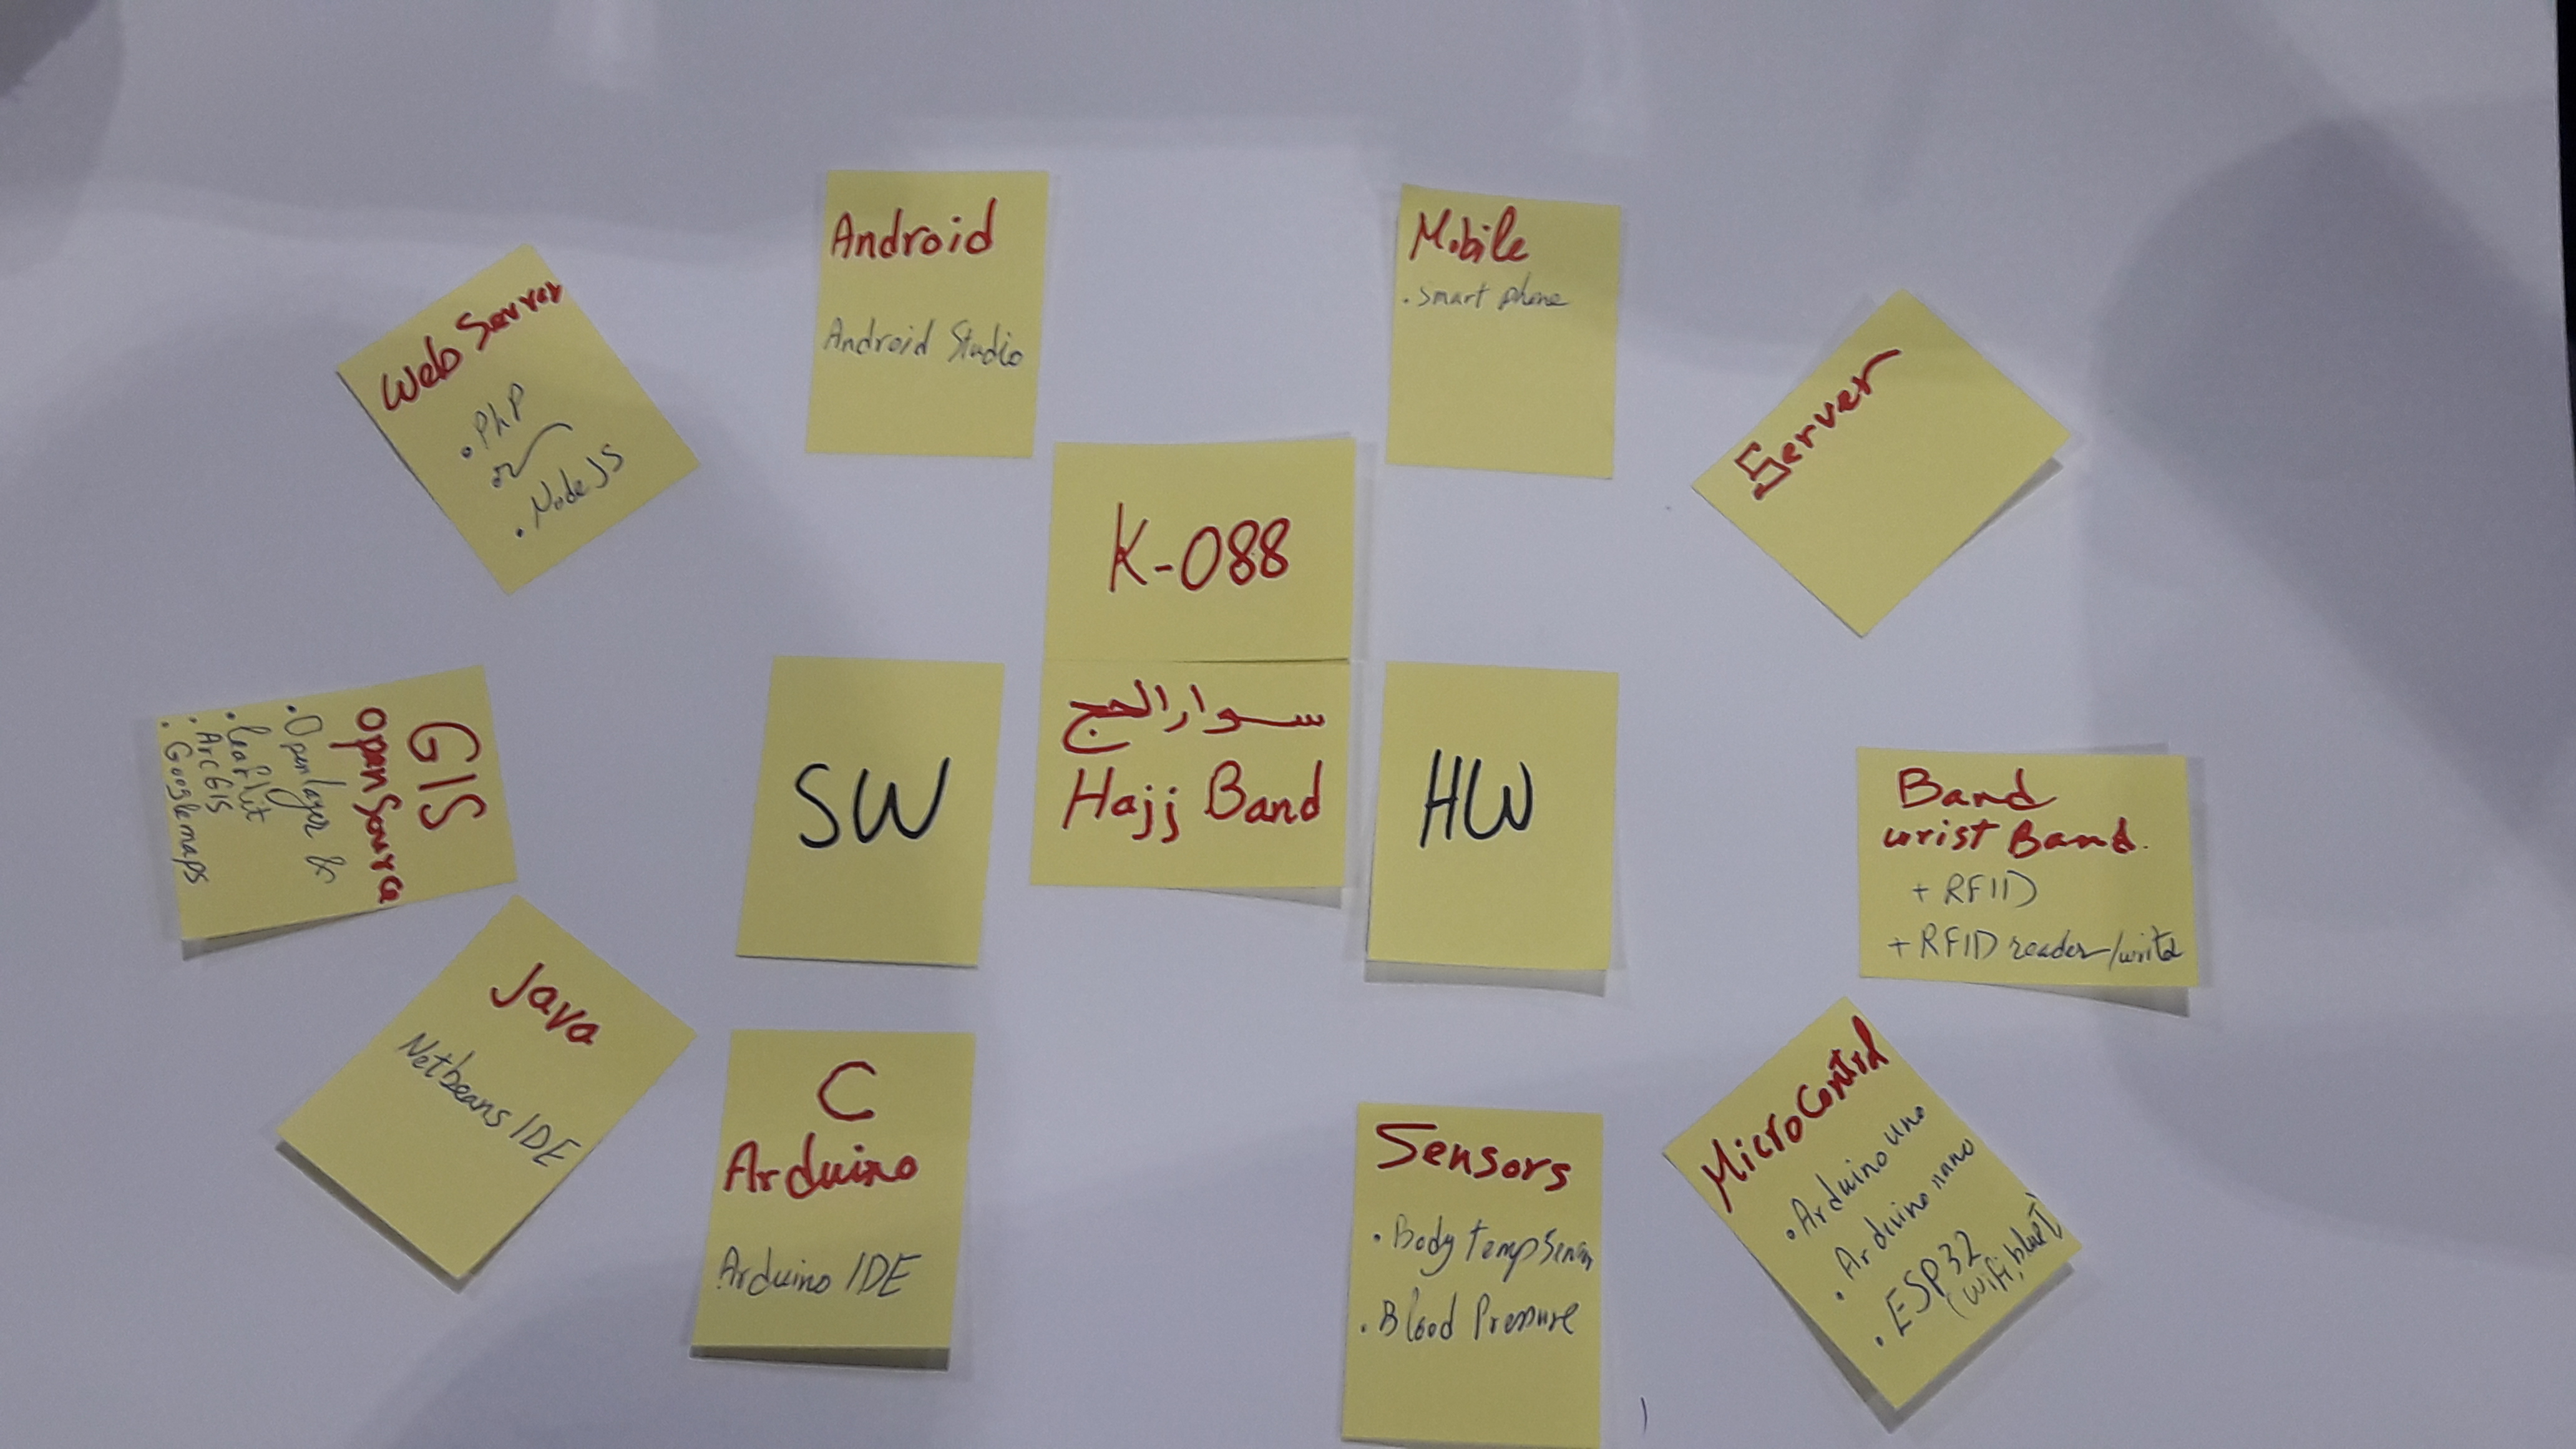 Android
Android Studio
Mobile
. smart phone
Web Server
. PhP
or
. NodeJS
Server
K-088
سوار الحج
Hajj Band
SW
HW
GIS
open Source
. Openlayer &
. leaflit
. ArcGIS
. Googlemaps
Band
wrist Band.
+ RFID
+ RFID reader/write
Java
Netbeans IDE
C
Arduino
Arduino IDE
Sensors
. Body temp Sensor
. Blood Pressure
MicroControl
. Arduino uno
. Arduino nano
. ESP32
(wifi, blueT)